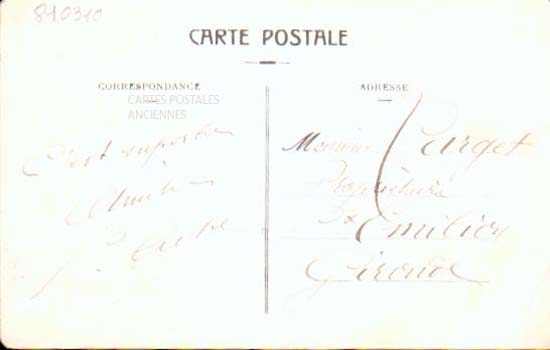 810310
CARTE POSTALE
CORRESPONDANCE
CARTES POSTALES
ANCIENNES
C'est superbe
ADRESSE
Monsieur Larget
Propriétaire
St Emilion
Gironde